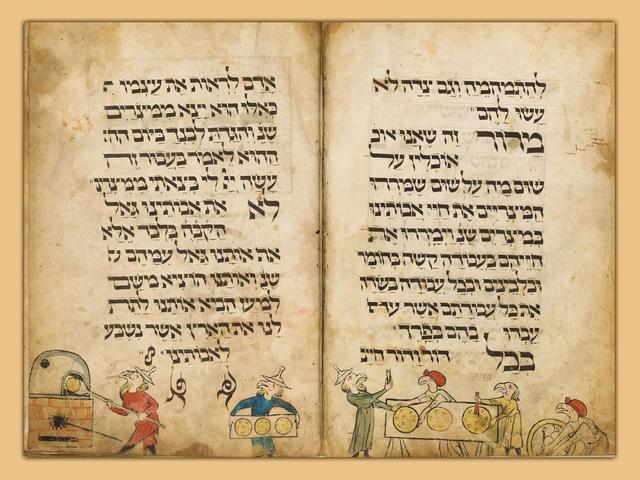 להתמהמה וגם צדה לא
עשו להם
מרור זה שאנו או
אוכלין על
שום מה על שום שמררו
המצריים את חיי אבותינו
במצרים שנ' וימררו את
חייהם בעבודה קשה בחומר
ובלבנים ובכל עבודה בשדה
את כל עבודתם אשר
עבדו בהם בפרך
בכל דור ודור חייב
אדם לראות את עצמו ה
כאלו הוא יצא ממצרים
שנ' והגדת לבנך ביום הה
ההוא לאמר בעבור זה
עשה לי בצאתי ממצרים
לא את אבותינו גאל
הקבה בלבד אלא
את אותנו גאל עמהם ה
שנ' ואותנו הוציא משם
למען הביא אותנו לתת
לנו את הארץ אשר נשבע
לאבותינו